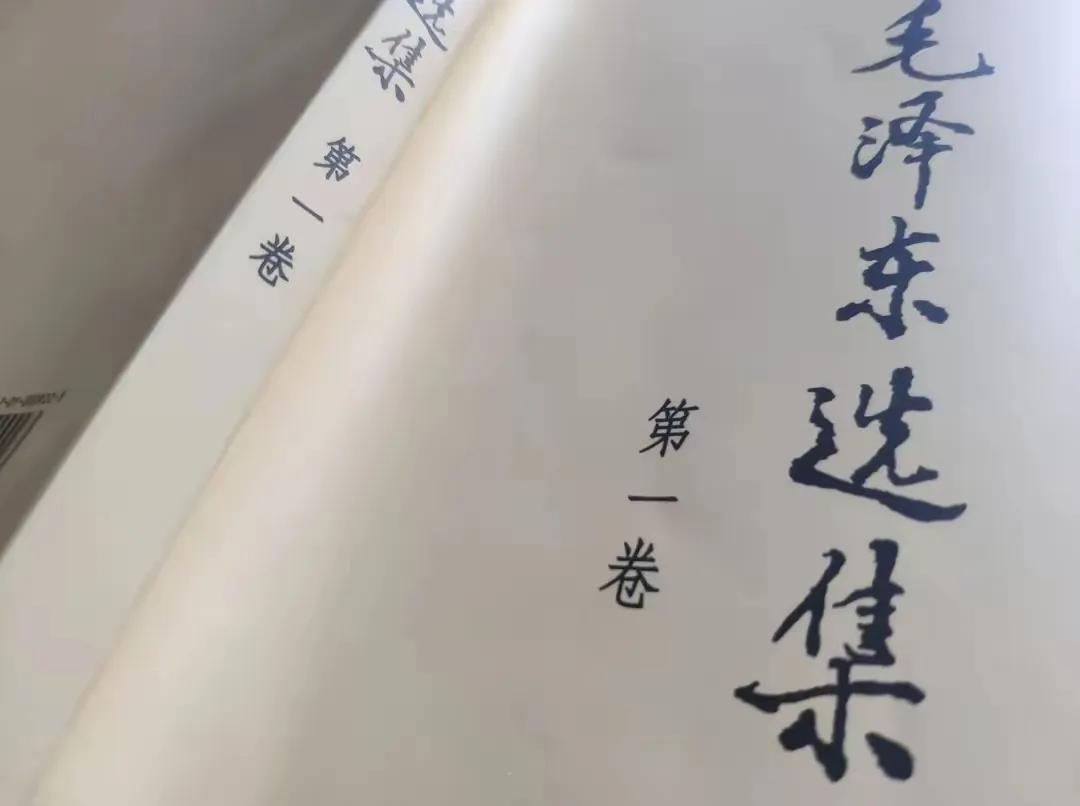 毛泽东选集
第一卷
选集
第一卷